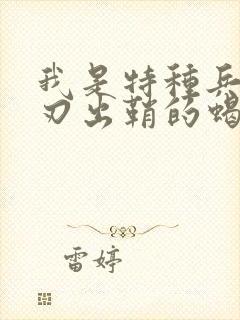 我是特種兵
刃出鞘的蝎
雷婷